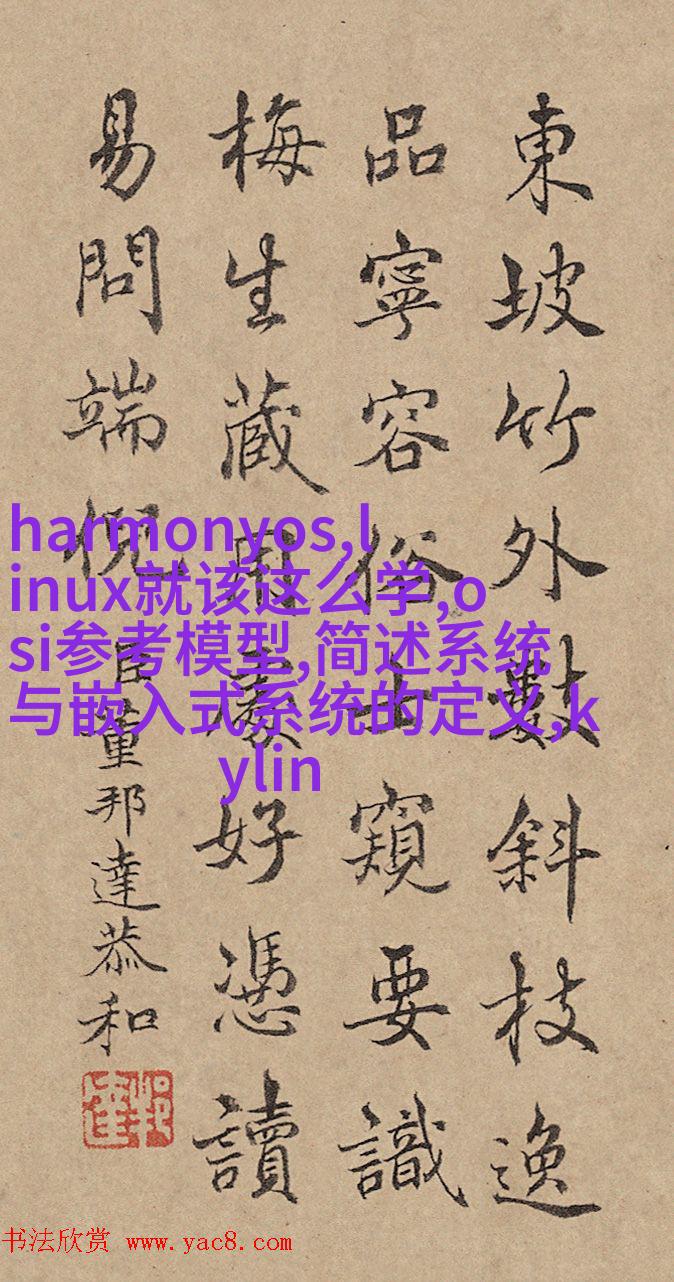 東坡竹外數斜枝逸
品寧容俗士窺要識
梅生藏用處好憑讀
易問端倪
臣董邦達恭和
harmonyos,l
inux就该这么学,o
si参考模型,简述系统
与嵌入式系统的定义,k
ylin
书法欣赏 www.yac8.com